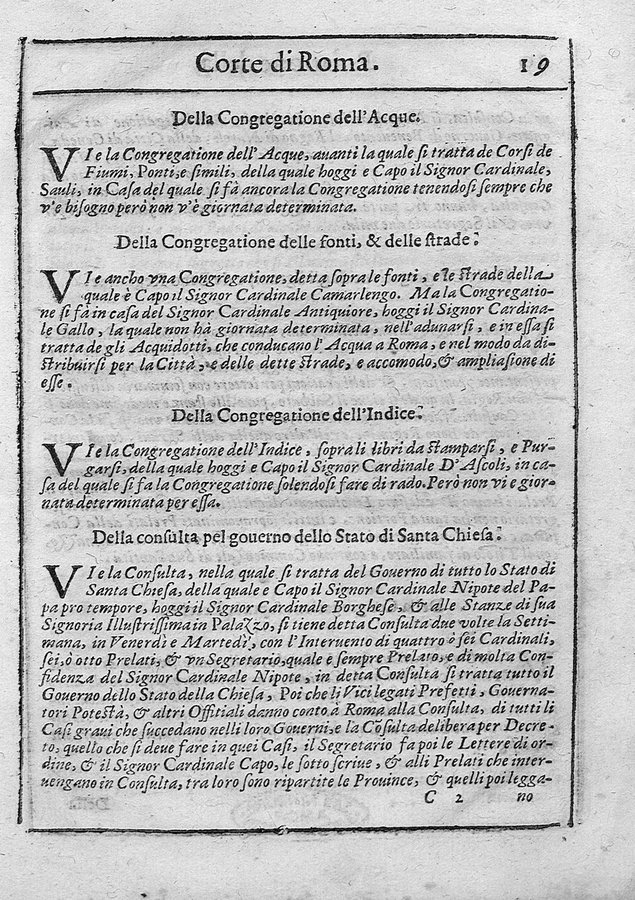 Corte di Roma. 19
Della Congregatione dell'Acque.
VIe la Congregatione dell'Acque, auanti la quale ſi tratta de Corſi de
Fiumi, Ponti, e ſimili, della quale hoggi e Capo il Signor Cardinale,
Sauli, in Caſa del quale ſi fà ancora la Congregatione tenendoſi ſempre che
v'e biſogno però non v'è giornata determinata.
Della Congregatione delle fonti, & delle ſtrade:
VIe ancho vna Congregatione, detta ſopra le fonti, e le ſtrade della
quale è Capo il Signor Cardinale Camarlengo. Ma la Congregatio-
ne ſi fà in caſa del Signor Cardinale Antiquiore, hoggi il Signor Cardina-
le Gallo, la quale non hà giornata determinata, nell'adunarſi, e in eſſa ſi
tratta de gli Acquidotti, che conducano l'Acqua a Roma, e nel modo da di-
ſtribuirſi per la Città, e delle dette ſtrade, e accomodo, & ampliaſione di
eſſe.
Della Congregatione dell'Indice:
VIe la Congregatione dell'Indice, ſopra li libri da ſtamparſi, e Pur-
garſi, della quale hoggi e Capo il Signor Cardinale D'Aſcoli, in ca-
ſa del quale ſi fa la Congregatione ſolendoſi fare di rado. Però non vi e gior-
nata determinata per eſſa.
Della conſulta pel gouerno dello Stato di Santa Chieſa:
VIe la Conſulta, nella quale ſi tratta del Gouerno di tutto lo Stato di
Santa Chieſa, della quale e Capo il Signor Cardinale Nipote del Pa-
pa pro tempore, hoggi il Signor Cardinale Borgheſe, & alle Stanze di ſua
Signoria Illuſtriſſima in Palazzo, ſi tiene detta Conſulta due volte la Setti-
mana, in Venerdì e Martedì, con l'Interuento di quattro ò ſei Cardinali,
ſei, ò otto Prelati, & vn Segretario, quale e ſempre Prelato, e di molta Con-
fidenza del Signor Cardinale Nipote, in detta Conſulta ſi tratta tutto il
Gouerno dello Stato della Chieſa, Poi che li Vicilegati Prefetti, Gouerna-
tori Poteſtà, & altri Offitiali danno conto à Roma alla Conſulta, di tutti li
Caſi graui che ſuccedano nelli loro Gouerni, e la Cõſulta delibera per Decre-
to, quello che ſi deue fare in quei Caſi, il Segretario fa poi le Lettere di or-
dine, & il Signor Cardinale Capo, le ſotto ſcriue, & alli Prelati che inter-
uengano in Conſulta, tra loro ſono ripartite le Prouince, & quelli poi legga-
C 2 no